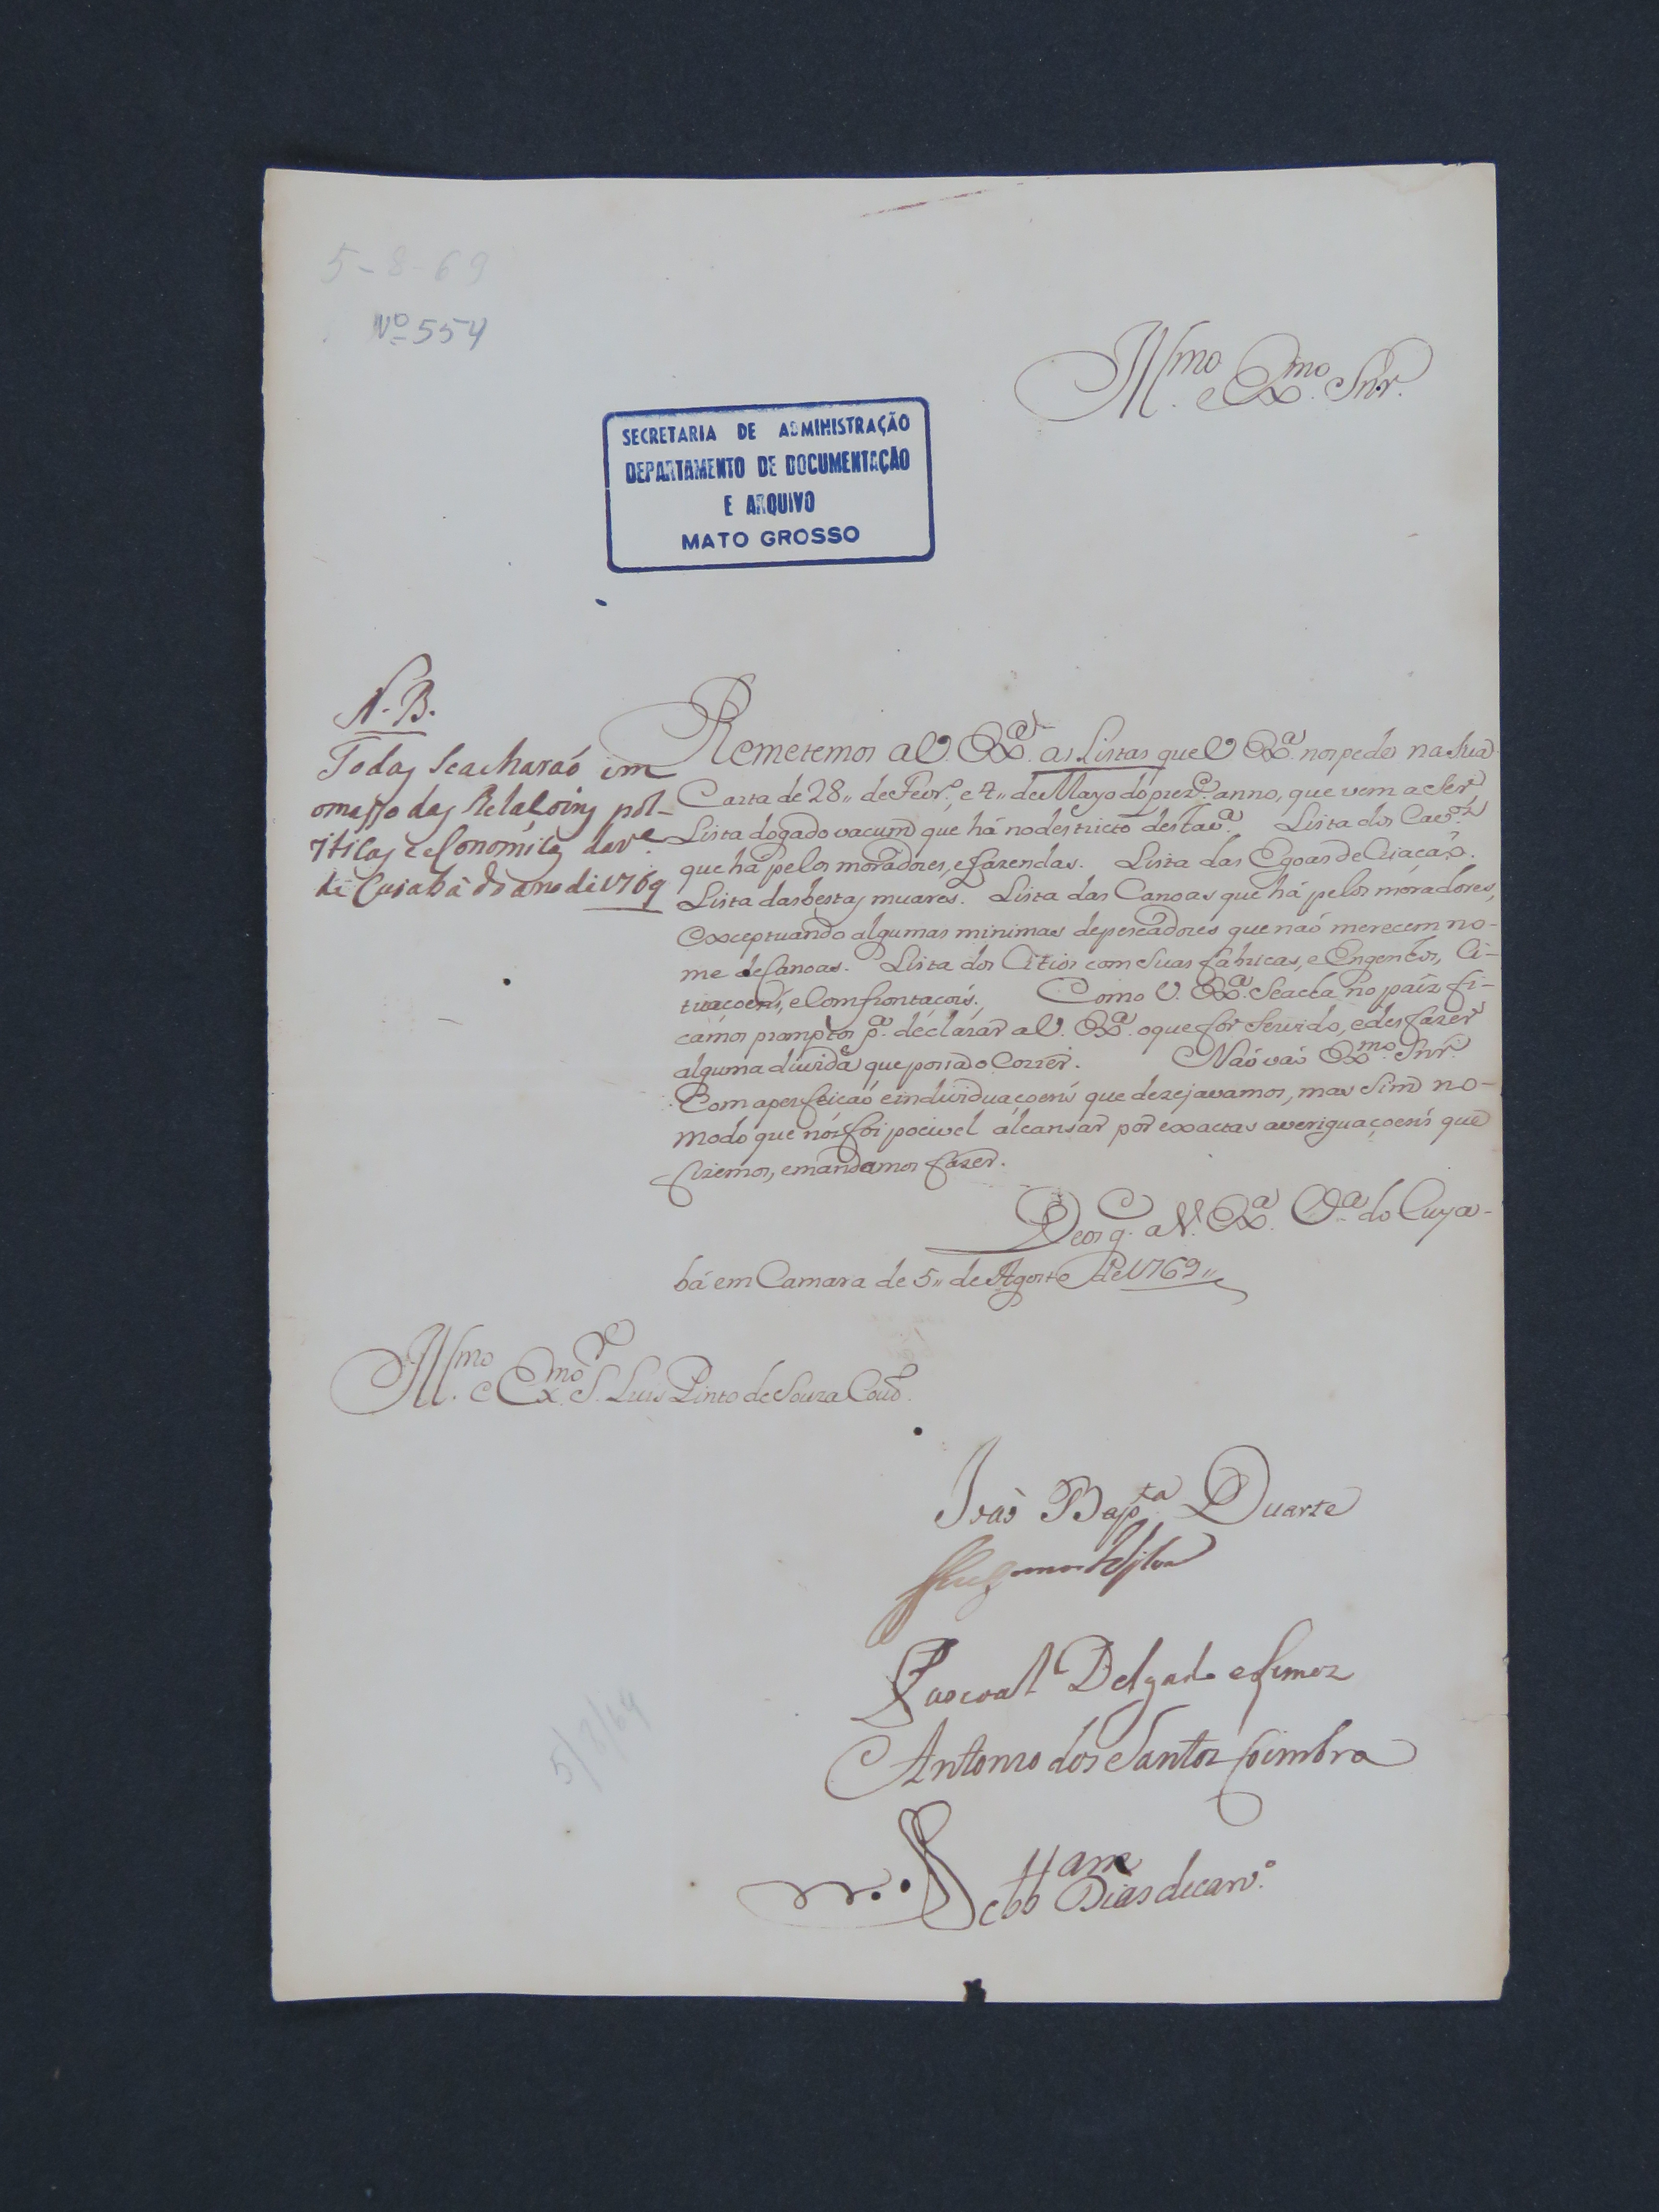 5-8-69
Nº 554
Illmo. e Exmo. Snr.
SECRETARIA DE ADMINISTRAÇÃO
DEPARTAMENTO DE DOCUMENTAÇÃO
E ARQUIVO
MATO GROSSO
N.B.
Todas se acharaó em
omasso das Relaçoins pol-
iticas e Economicas da v.ª
de Cuiabâ do ano de 1769
Remetemos a V. Exª. as Listas que V Exª. nos pede na Sua
Carta de 28,, de Fevr.º, e 4,, de Mayo do prez.e anno, que vem a Ser
Lista do gado vacum que há no destricto desta v.ª Lista dos Cav.os
que há pelos moradores, e fazendas. Lista das Egoas de Criaçaó.
Lista das bestas muares. Lista das Canoas que há pelos moradores,
exceptuando algumas minimas de pescadores que naó merecem no-
me de Canoas. Lista dos Citios com Suas fabricas, e Engenhos, Ci-
tuaçoens, e Comfrontaçois. Como V. Exª. Seacha no païz fi-
camos promptos pª. declarar a V. Exª. oque for Servido, edesfazer
alguma duvida que possa oCorrer. Naó vaó Exmo. Snr.
Com aperfeiçaó e individuaçoens que dezejavamos, mas Sim no-
modo que nos foi pocivel alcansar por exactas averiguaçoens que
fizemos, emandamos fazer.
Deos g.e a V. Exª. V.ª do Cuya-
bá em Camara de 5,, de Agosto de 1769,,
Illmo. e Exmo. S.r Luis Pinto de Souza Cout.º
Joaó Bapt.ª Duarte
Pascoal Delgado e Lemoz
Antonio dos Santos Coimbra
Seb.am Dias de carv.º